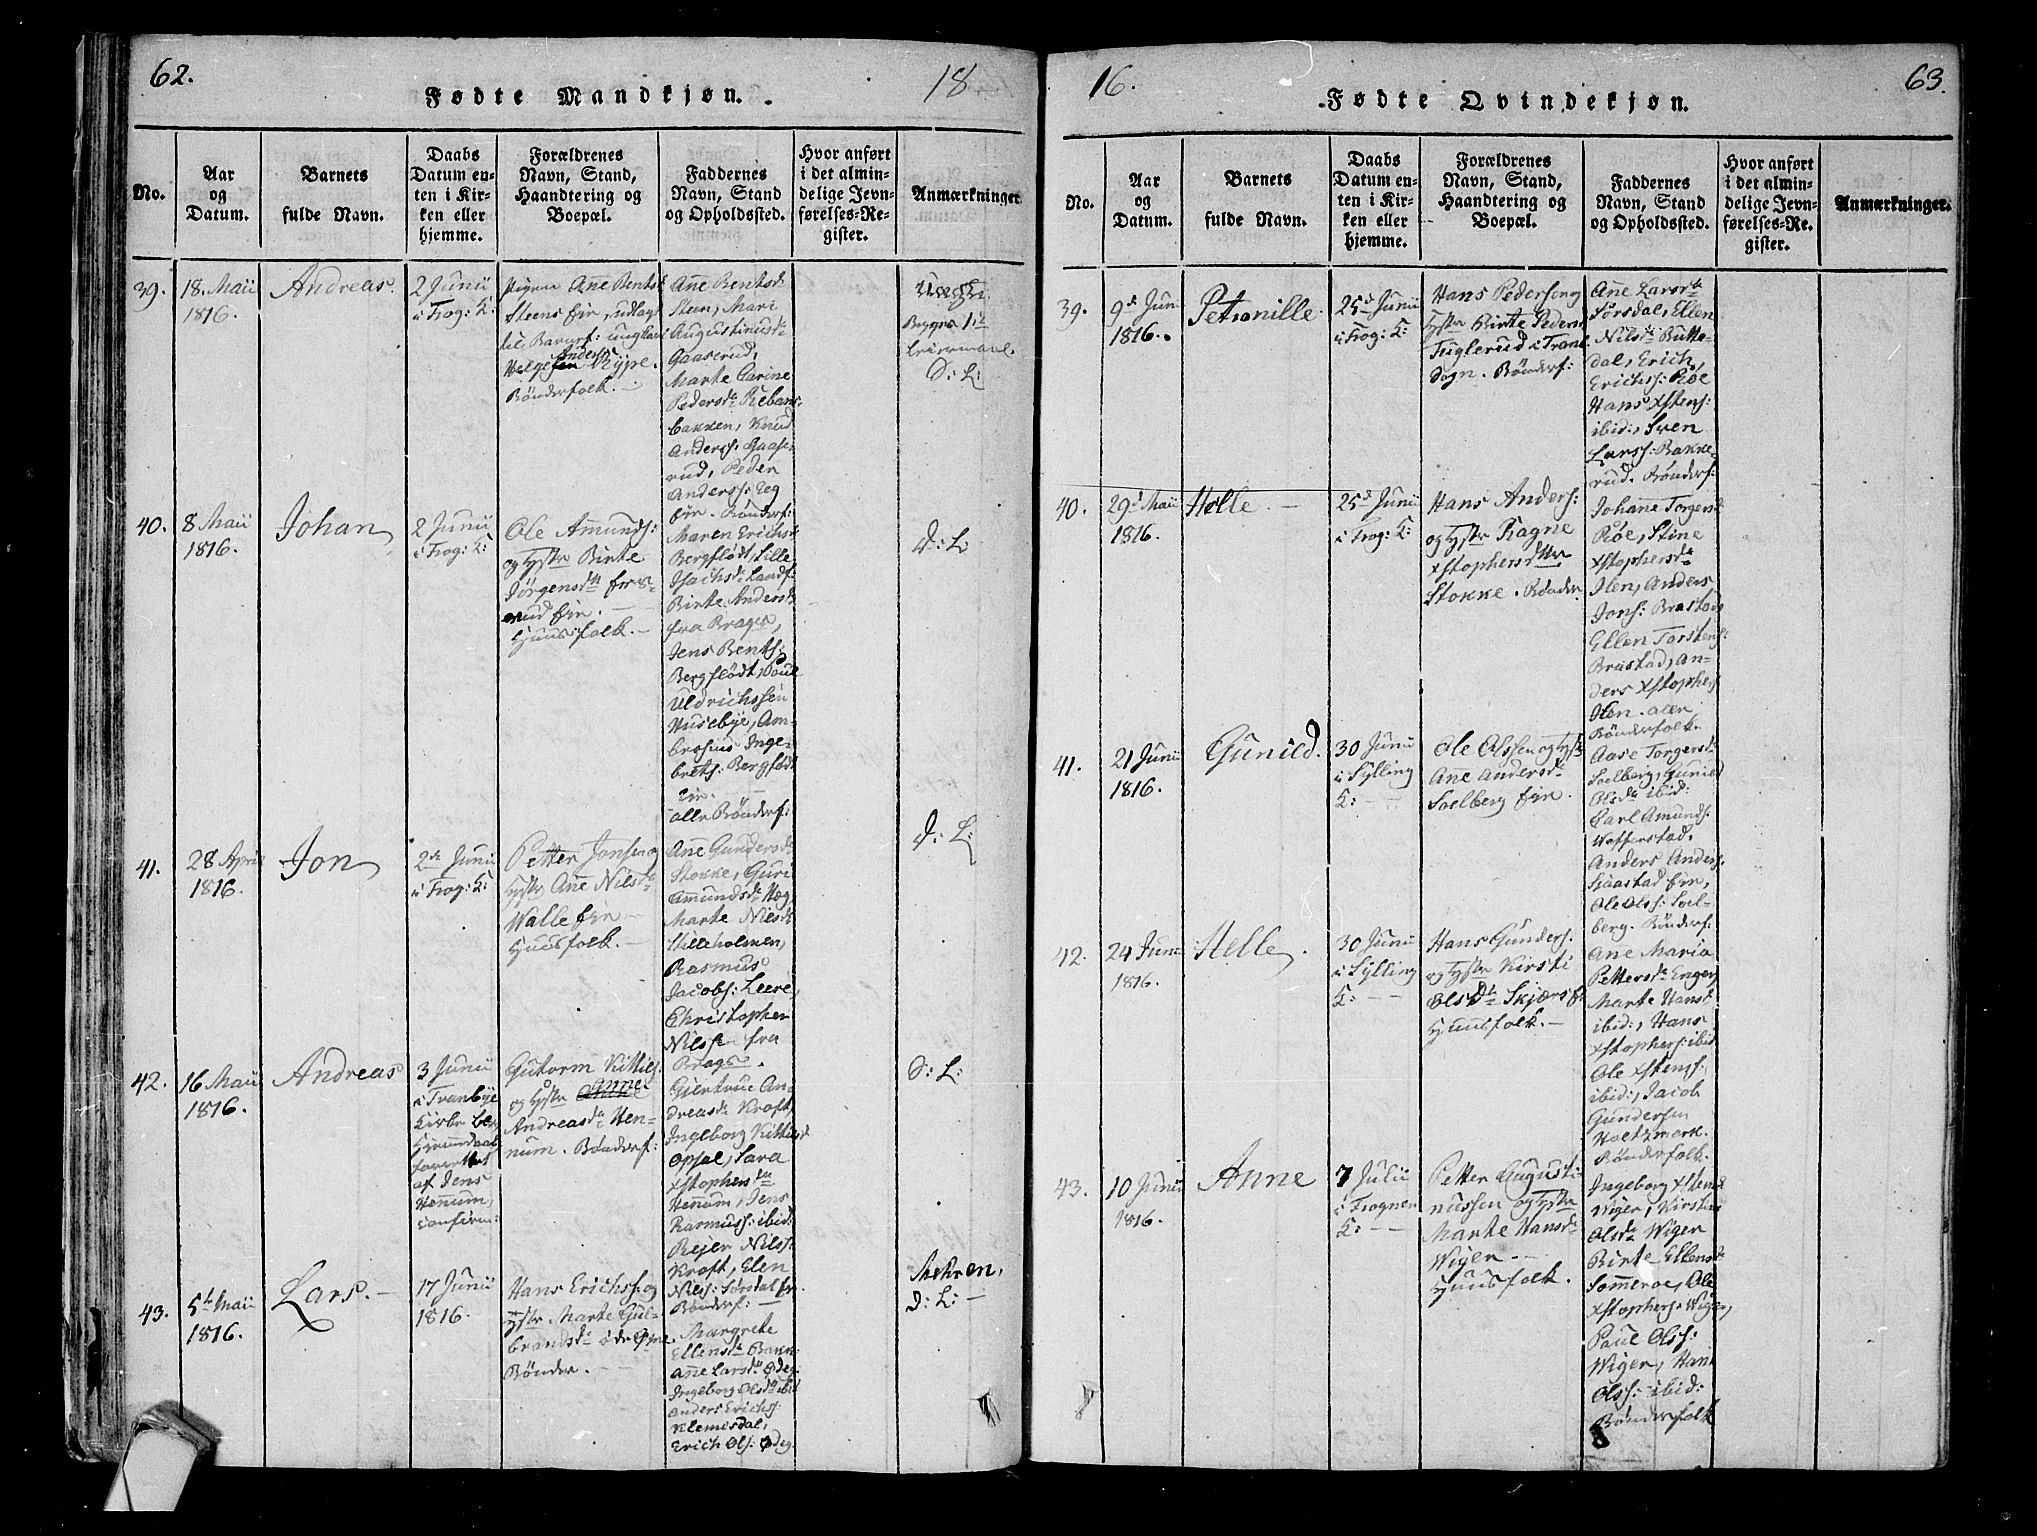 62.
Fødte Mandkjøn.
18
No.
Aar
og
Datum.
Barnets
fulde Navn.
Daabs
Datum en-
ten i Kir-
ken eller
hjemme.
Forældrenes
Navn, Stand,
Haandtering og
Boepæl.
Faddernes
Navn, Stand
og Opholdssted.
Hvor anført
i det almin-
delige Jevn-
førelses-Re-
gister.
Anmærkninger.
39.
18. Maii
1816.
Andreas.
2 Junii
i Frog: K:
Pigen Ane Bents
Steens Eier, udlagt
til Barnef: ungkarl
Anders
Helgesen Rype.
Bönderfolk.
Ane Bentsd:
Steen, Mari
Augustinusdr
Gaaserud,
Marte Carine
Pedersdr Rebans-
bakken, Knud
Anderss: Gaase-
rud, Peder
Anderss: Teg
Eier. Bönderf:
Begges 1ste
Leiermaal.
D: L:
40.
8 Maii
1816.
Johan
2 Junii
i Frog: K:
Ole Amunds:
og Hstr Birte
Jörgensdtr
rud Eier.
Huusfolk.
Maren Erichsd
Bergflödt, Lille
Isachsdr Landf:
Birte Andersd
fra Brages,
Jens Bents:
Bergflödt, Poul
Uldrichssen
Husebye, Am-
brosius Inge-
brets: Bergflödt
Eier.
alle Bönderf:
D: L:
41.
28 April
1816.
Jon
2de Junii
i Frog: K:
Petter Jonsen og
Hstr Ane Nilsdr
Walle Eier
Huusfolk.
Ane Gundersd
Stokke, Guri
Amundsdr Høg
Marte Nilsd
Stilleholmen,
Rasmus
Jacobs: Leere,
Christopher
Nilssen fra
Brages.
D: L:
42.
16 Maii
1816.
Andreas
3 Junii
i Tranbye
Kirke be-
af Jens
Hennum,
confirm:
Gutorm Kittils:
og Hstr Anne
Andreasdr Hen-
num. Bönderf:
Giertrue An-
dreasdr Kroft,
Ingeborg Kittilsd
Opsal, Sara
Xstophersdtr
Henum, Jens
Rasmuss: ibid:
Rejer Nilss:
Kroft, Elen
Nils: Sörsdal Er.
Bönderf:
D: L:
43.
5te Maii
1816.
Lars.
17 Junii
1816.
Hans Erichss: og
Hstr Marte Gul-
brandsdr
Bönder.
Margrete
Ellensdr Bakk
Ane Larsdr Ødeg:
Ingeborg Olsdr ibid
Anders Erichs:
Klemesdal,
Erich Ols: Ødeg.
Mehren,
D: L:
16.
Fødte Qvindekjøn.
63.
No.
Aar
og
Datum.
Barnets
fulde Navn.
Daabs
Datum en-
ten i Kir-
ken eller
hjemme.
Forældrenes
Navn, Stand,
Haandtering og
Boepæl.
Faddernes
Navn, Stand
og Opholdssted.
Hvor anført
i det almin-
delige Jevn-
førelses-Re-
gister.
Anmærkninger.
39.
9de Juni
1816.
Petronille.
25de Junii
i Frog: K:
Hans Pedersen og
Hstr Birte Pedersd
Fuglerud i Tranb
Sogn. Bönderf:
Ane Larsdr
Sörsdal, Ellen
Nilsdr Butte-
dal, Erich
Erichss: Røe
Hans Xstens:
ibid:, Sven
Larss: Bakke-
rud. Bönderf:
40.
29de Maii
1816.
Helle.
25de Junii
i Frog: K:
Hans Anders:
og Hstr Ragne
Xstophersdtter
Stokke. Bönder
Johane Torgersd
Røe, Stine
Xstophersdr
Ilen, Anders
Jons: Brastad,
Ellen Torstens:
Brastad, An-
ders Xstophers
Ilen. alle
Bönderfolk.
41.
21 Junii
1816.
Gunild.
30 Junii
i Sylling
K:
Ole Olssen og Hstr
Ane Andersdr
Soelberg Eier.
Aase Torgersdr
Soelberg, Gunild
Olsdr ibid:
Carl Amunds:
Wefferstad,
Anders Anders:
Sjaastad Eier,
Ole Ols: Soel-
berg. Bönderf:
42.
24 Junii
1816.
Helle.
30 Junii
i Sylling
K:
Hans Gunders:
og Hstr Kirsti
Olsdtr Skjærsf:
Huusfolk.
Ane Maria
Pettersdr Enger,
Marte Hansd
ibid:, Hans
Xstophers: ibid
Ole Xstens:
ibid:, Jacob
Gundersen
Holtzmark.
Bönderfolk.
43.
10 Junii
1816.
Anne
7 Julii
i Frognen
K:
Petter Augusti-
nussen og Hstr
Marte Hansdr
Wiger
Huusfolk.
Ingeborg Xstensd
Wiger, Kirstine
Olsdr Wiger
Birte Ellensdr
Sommeroe, Ole
Xstophers: Wiger,
Paul Olss:
Wiger, Hans
Olss: ibid:
Bönderfolk